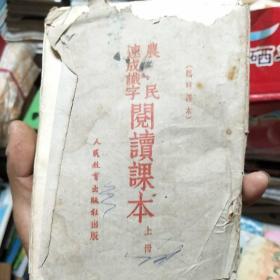 (臨時課本)
農民
速成識字
閱讀課本
上冊
人民教育出版社出版